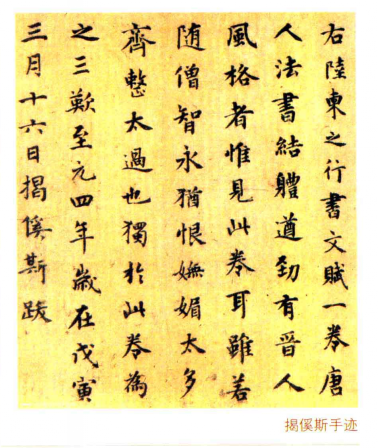 右陸東之行書文賦一卷唐
人法書結體遒勁有晉人
風格者惟見此卷耳雖若
随僧智永猶恨嫵媚太多
齊整太過也獨於此卷為
之三歎至元四年歲在戊寅
三月十六日揭傒斯跋
揭傒斯手迹